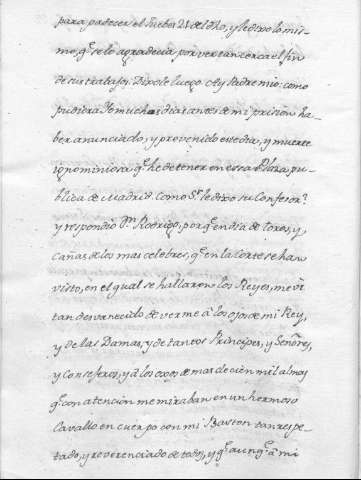 para padecer el Jueves 21 de dho, y le dixo lo mis-
mo, q.e se lo agradecia por ver tan cerca el fin
de sus trabajos. Dixole luego: Ay Padre mio: como
pudiera Yo muchos dias antes de mi prision ha-
ber anunciado, y prevenido este dia, y muerte
ignominiosa q.e he de tener en essa Plaza pu-
blica de Madrid. Como S.r le dixo su Confesor?
y respondió D.n Rodrigo, porq.e en dia de toros, y
cañas de los mas celebres, q.e en la Corte se han
visto, en el qual se hallaron los Reyes, me vi
tan desvanecido de verme à los ojos de mi Rey,
y de las Damas, y de tantos Principes, y Señores,
y Consejeros, y à los ojos de mas de cien mil almas
q.e con atención me miraban en un hermoso
Cavallo en cuerpo con mi Baston tan respe-
tado, y reverenciado de todos, y q.e aunq.e à mi